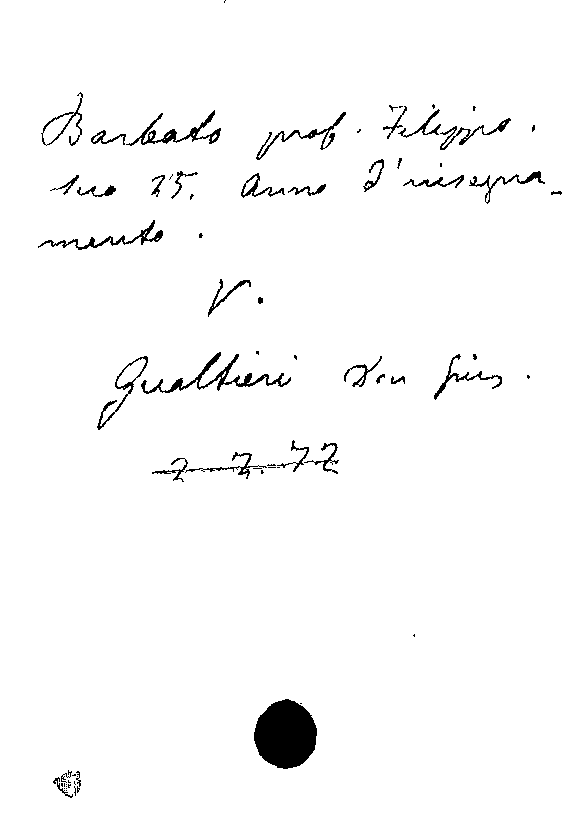 Barbato prof. Filippo.
suo 25. anno d'insegna-
mento.
V.
Gualtieri Don Gius.